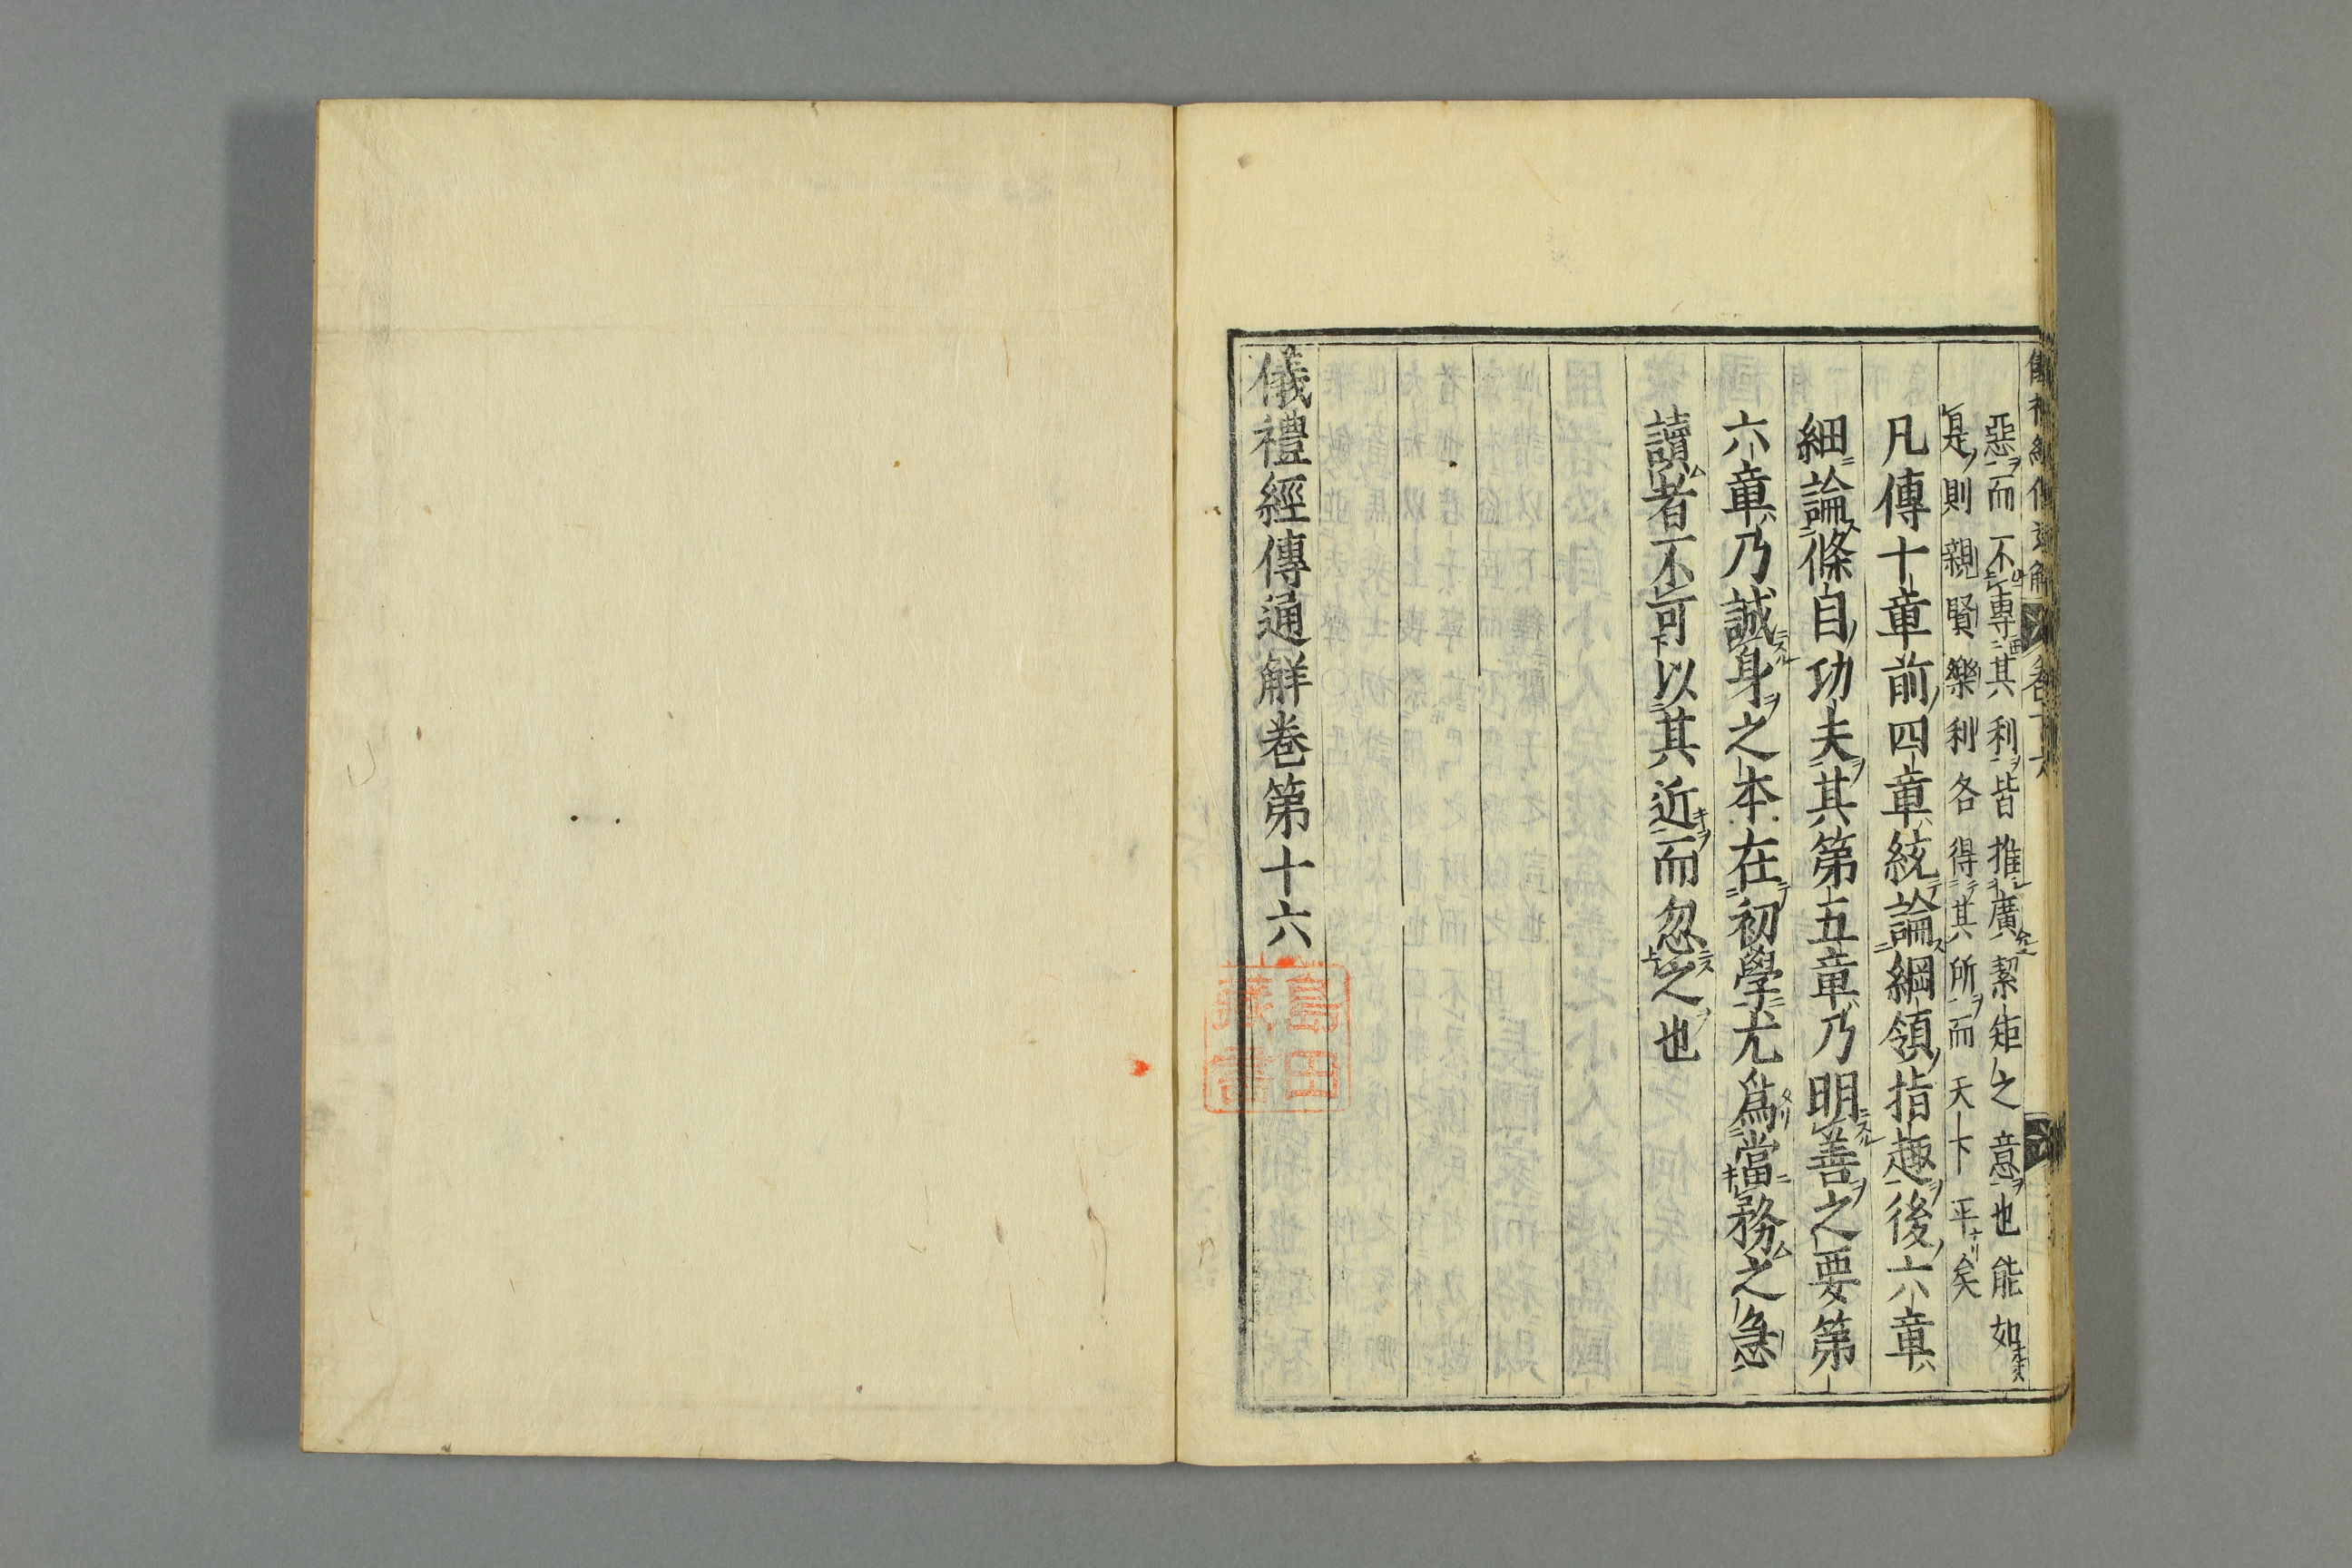 儀禮經傳通解 卷十六
惡而不專其利皆推廣絜矩之意也能如
是則親賢樂利各得其所而天下平矣
凡傳十章前四章統論綱領指趣後六章
細論條自功夫其第五章乃明善之要第
六章乃誠身之本在初學尤爲當務之急
讀者不可以其近而忽之也
儀禮經傳通解卷第十六
島田
藏書